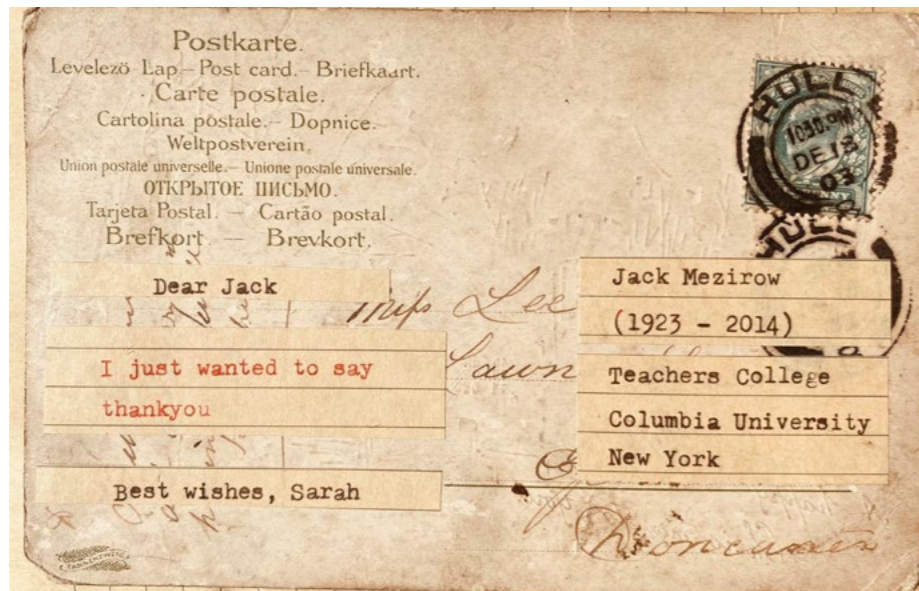 Postkarte.
Levelező Lap.– Post card.– Briefkaart.
Carte postale.
Cartolina postale.– Dopnice.
Weltpostverein.
Union postale universelle.– Unione postale universale.
ОТКРЫТОЕ ПИСЬМО.
Tarjeta Postal. – Cartão postal.
Brefkort. – Brevkort.
HULL
1030.PM
DE 18
03
HULL
Dear Jack
I just wanted to say
thankyou
Best wishes, Sarah
Jack Mezirow
(1923 - 2014)
Teachers College
Columbia University
New York
Miss Lee
Lawn
Doncaster